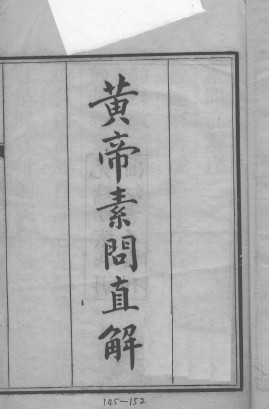 黃帝素問直解
145-152